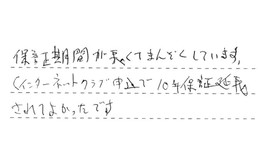 保証期間が長くてまんぞくしています。
(インターネットクラブ申込で10年保証延長
されてよかったです